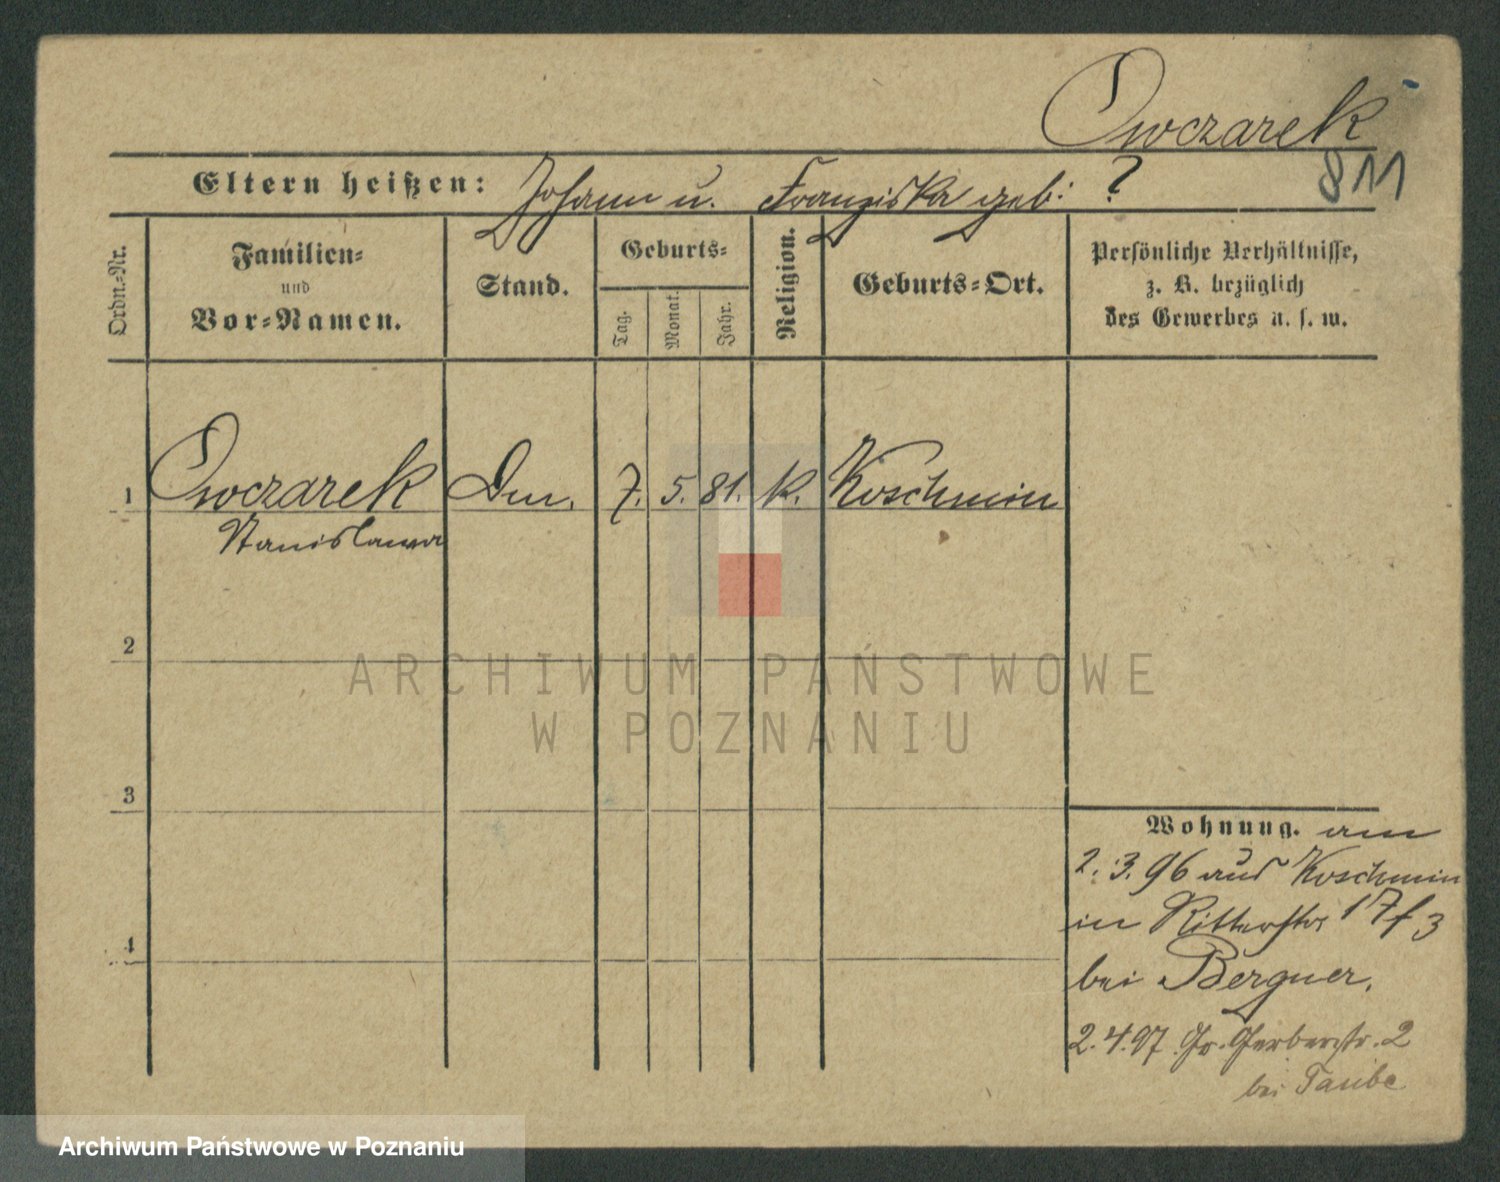 Owczarek
811
Eltern heißen: Johann u. Franziska geb: ?
Ordn.-Nr.
Familien-
und
Vor-Namen.
Stand.
Geburts-
Tag.
Monat.
Jahr.
Religion.
Geburts-Ort.
Persönliche Verhältnisse,
z. B. bezüglich
des Gewerbes u. s. w.
1 Owczarek Dm. 7. 5. 81. k. Koschmin
Stanislawa
2
ARCHIWUM PAŃSTWOWE
W POZNANIU
3
Wohnung. am
2.3.96 aus Koschmin
in Ritterstr 17f3
bei Bergner.
4
2.4.97 Gr. Gerberstr. 2
bei Taube
Archiwum Państwowe w Poznaniu